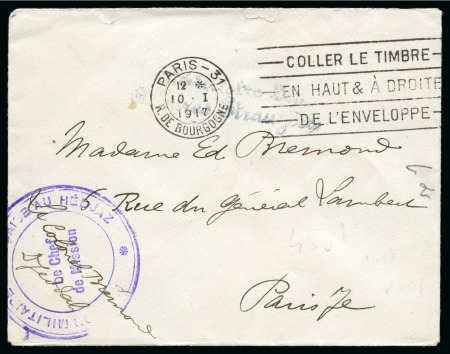 PARIS - 31
12 *
10 · I
1917
R. DE BOURGOGNE
COLLER LE TIMBRE
EN HAUT & À DROITE
DE L'ENVELOPPE
Madame Ed Bremond
5 Rue du général Lambert
Paris 7e
MILITAIRE AU HEDJAZ
Le Chef
de Mission
Le Colonel Bremond
Djeddah